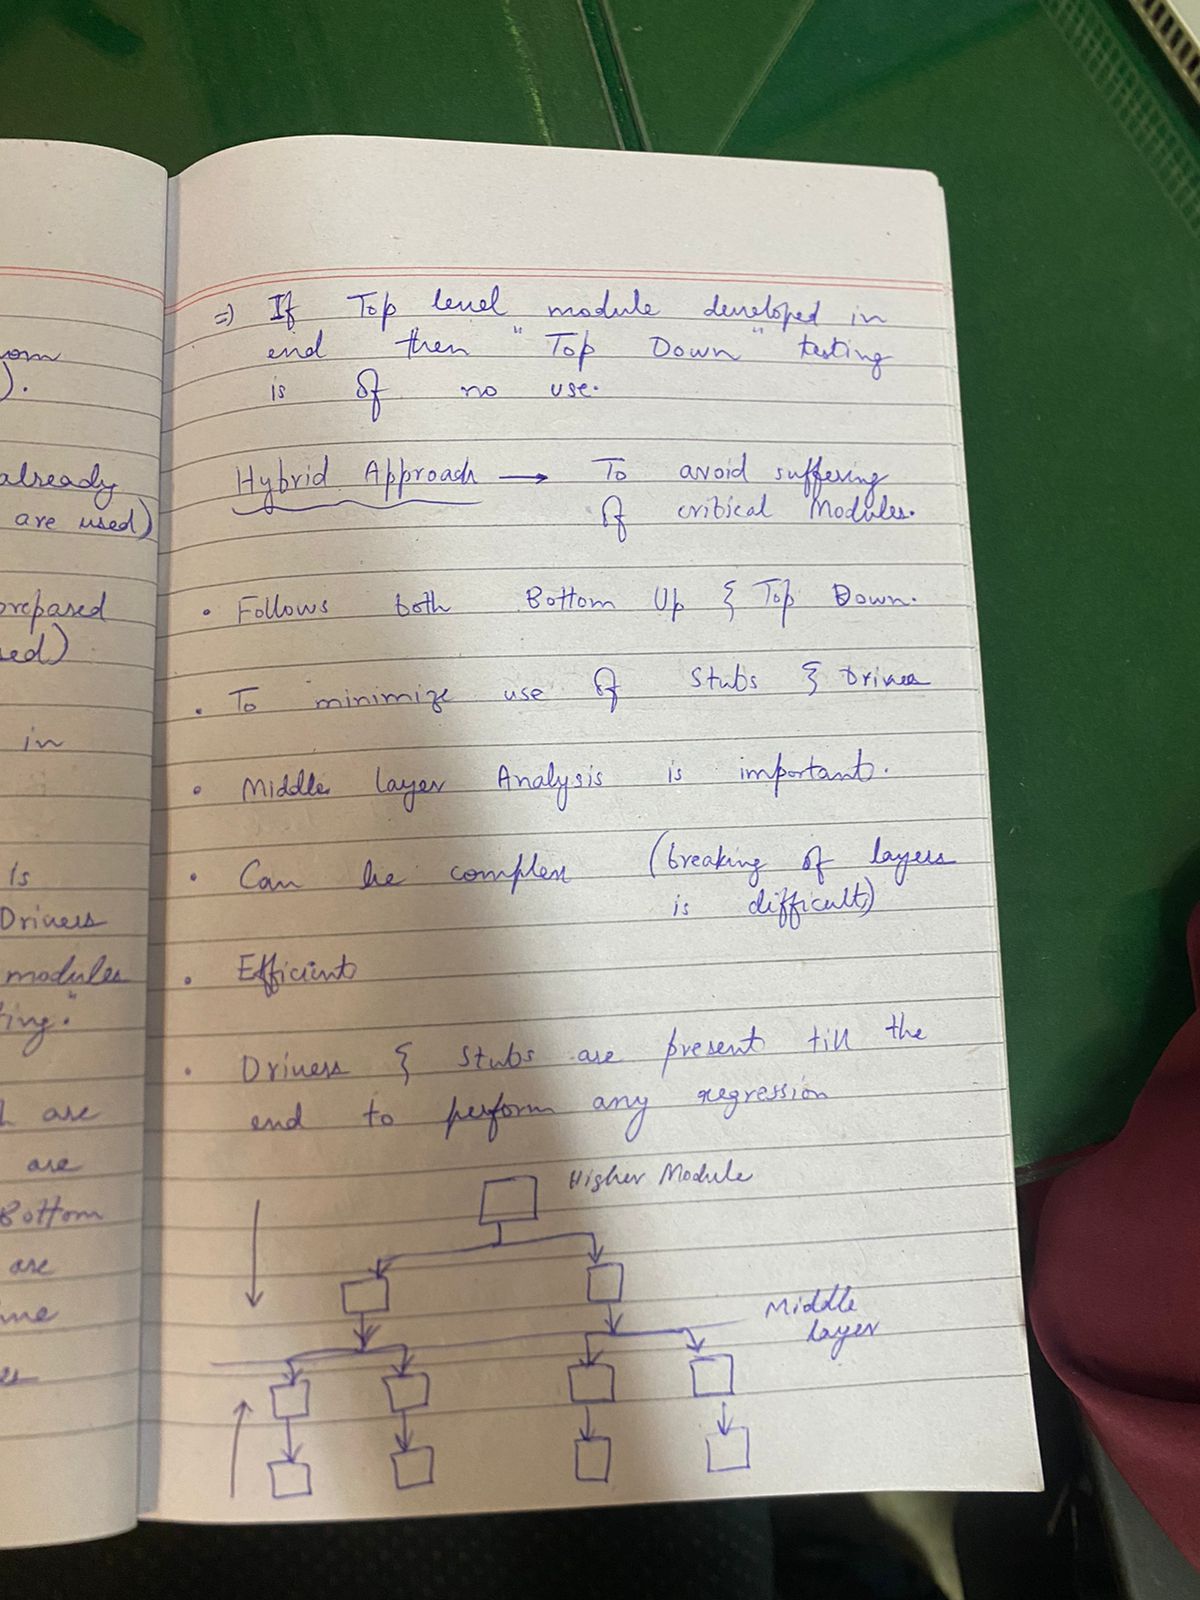 yom
).
already
are used)
prepared
sed)
in
Is
Drivers
modules
ting."
are
are
Bottom
are
=) If Top level module developed in
end then "Top Down" testing
is of no use.
Hybrid Approach → To avoid suffering
of critical Modules.
• Follows both Bottom Up & Top Down.
• To minimize use of Stubs & Drives
• Middle layer Analysis is important.
• Can be complex (breaking of layers
is difficult)
• Efficient
• Drivers & Stubs are present till the
end to perform any regression
Higher Module
Middle
layer